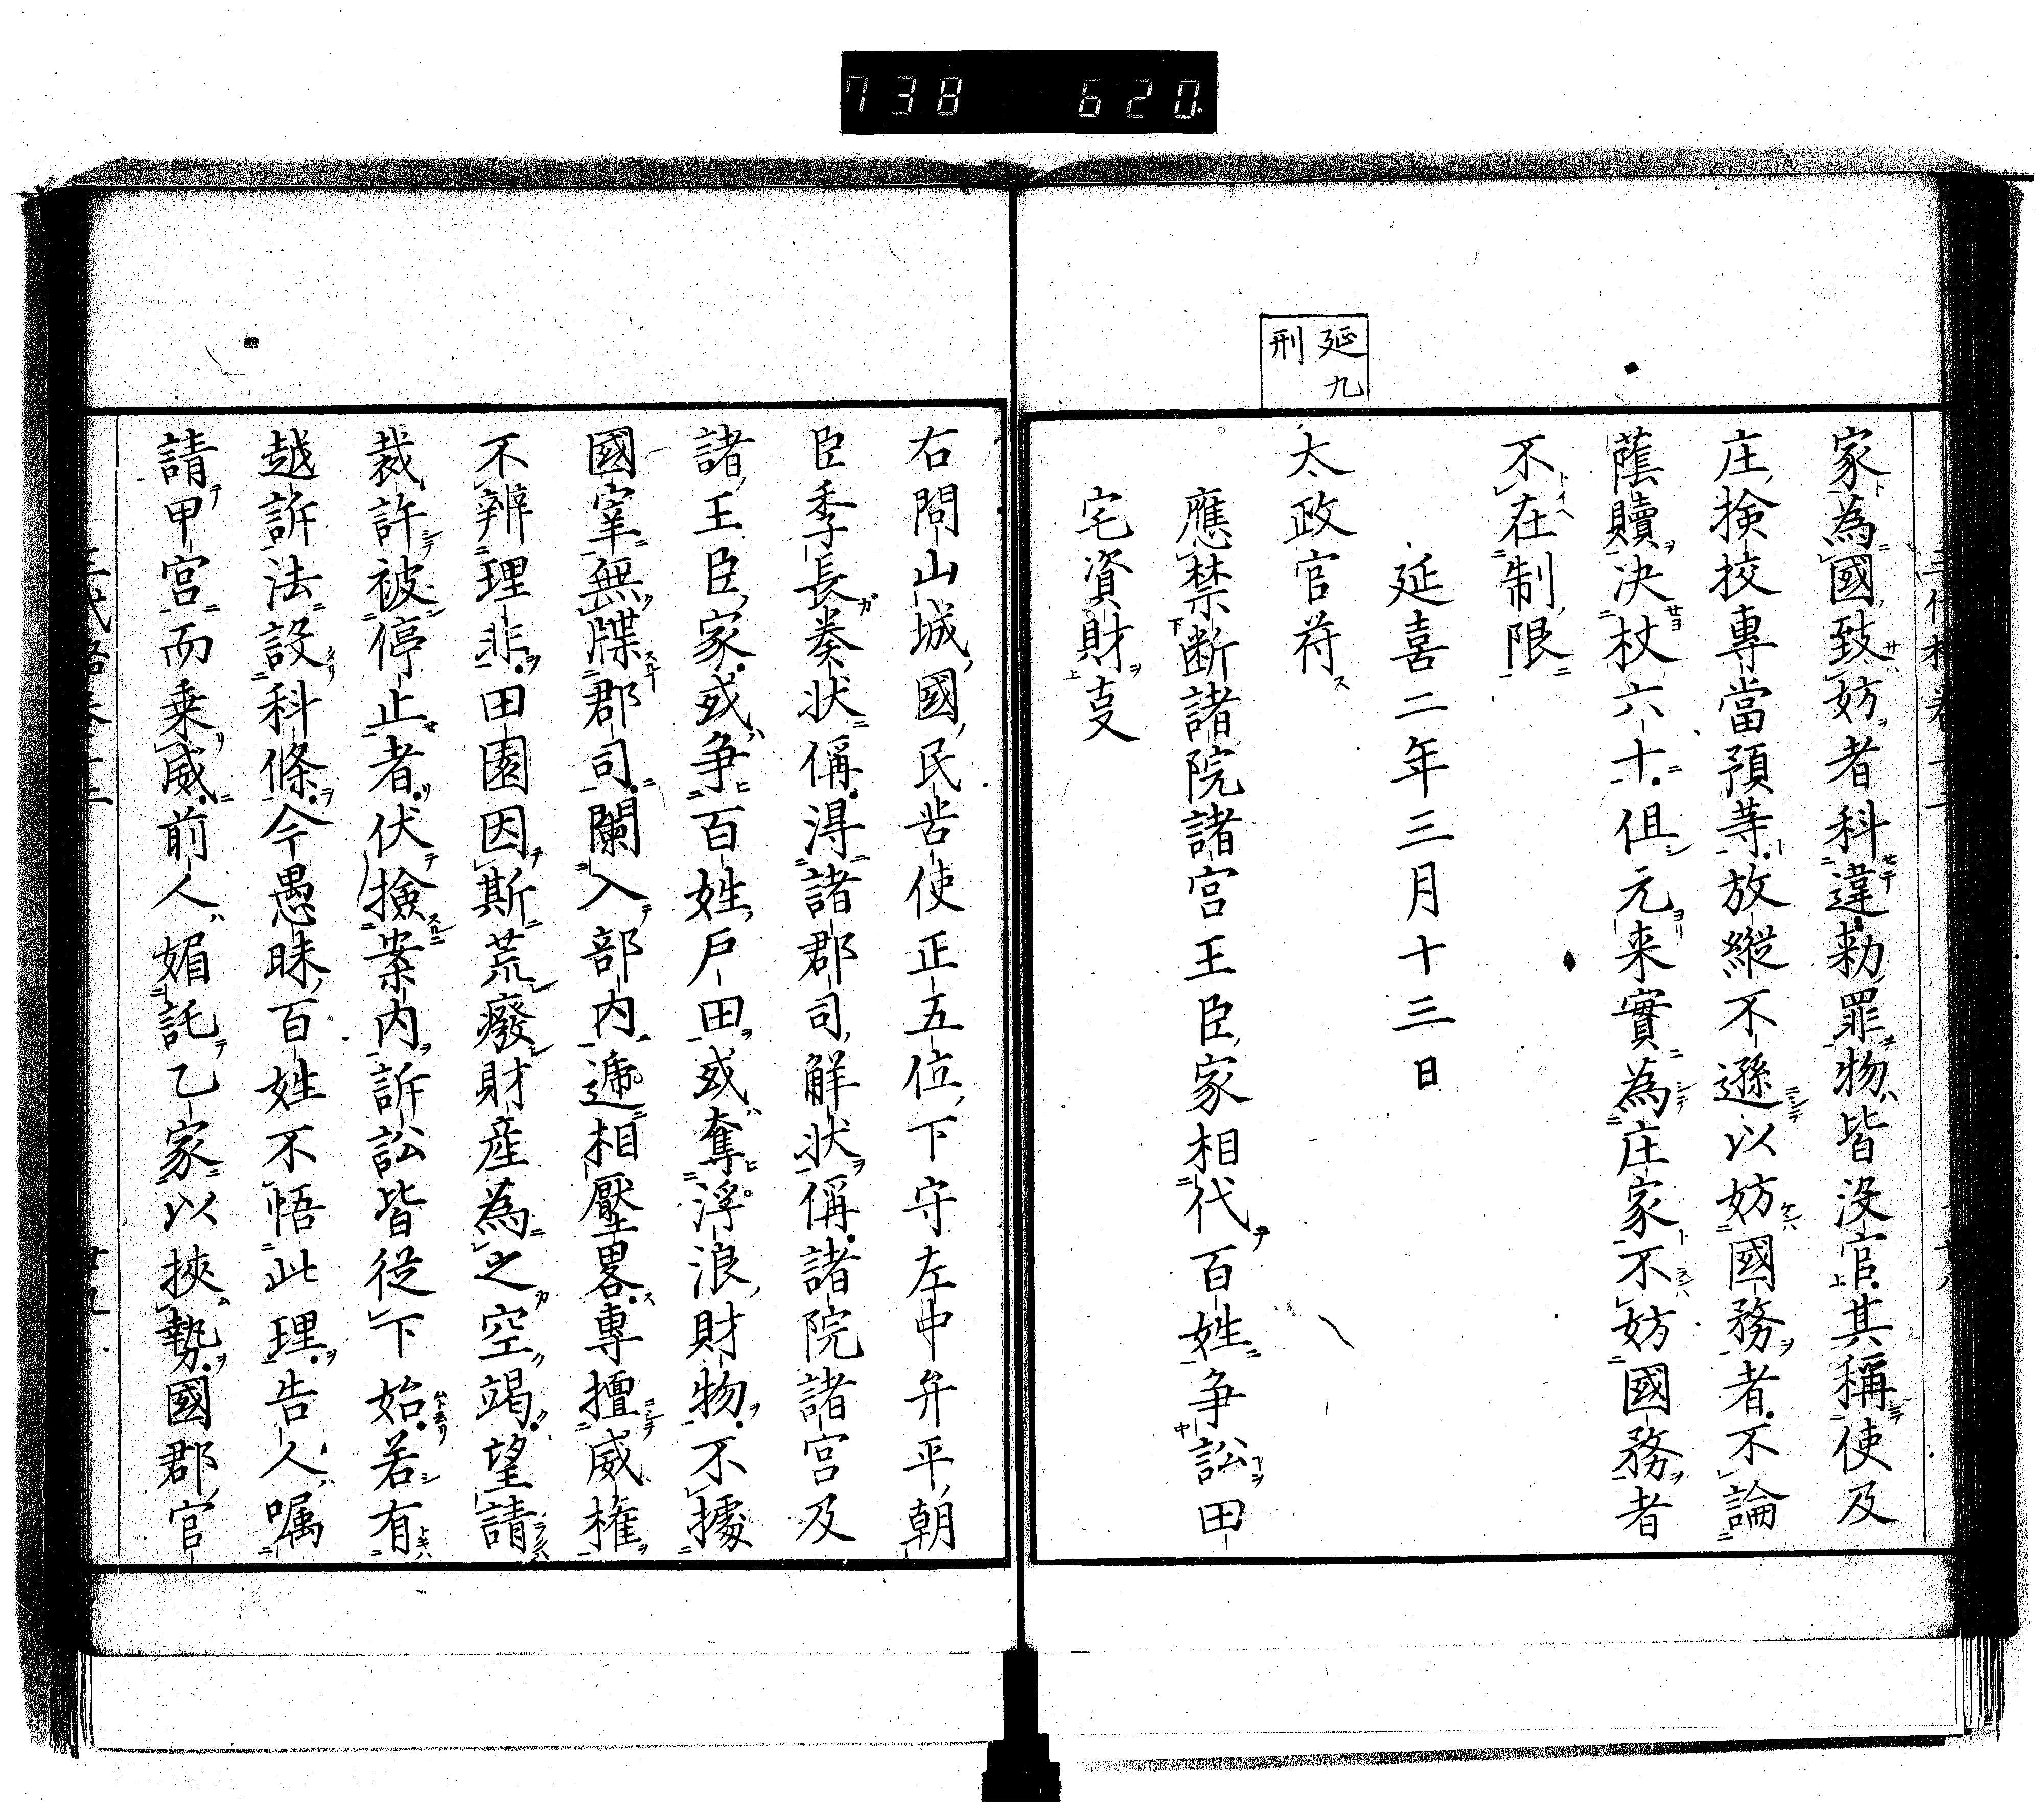 738 620
家為國致妨者科違勅罪物皆没官其稱使及
庄検挍專當預等放縱不遜以妨國務者不論
蔭贖决杖六十但元来實為庄家不妨國務者
不在制限
延喜二年三月十三日
延九
刑
太政官符
應禁断諸院諸宮王臣家相代百姓争訟田
宅資財叓
右問山城國民苦使正五位下守左中弁平朝
臣季長奏状偁得諸郡司解状偁諸院諸宮及
諸王臣家或争百姓戸田或奪浮浪財物不據
國宰無牒郡司闌入部内逓相壓畧專擅威権
不辨理非田園因斯荒癈財産為之空竭望請
裁許被停止者伏撿案内訴訟皆従下始若有
越訴法設科條今愚昧百姓不悟此理告人嘱
請甲宮而乗威前人媚託乙家以挾勢國郡官